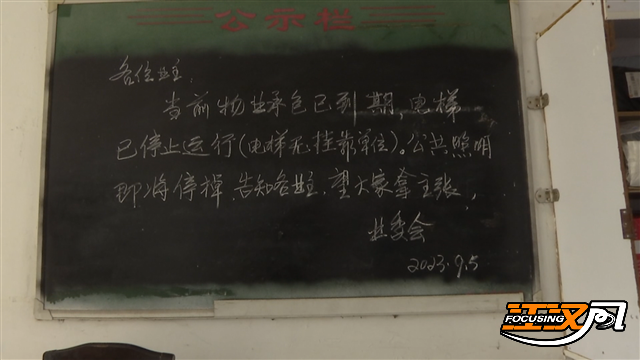 公示栏
各位业主：
当前物业承包已到期，电梯
已停止运行（电梯无挂靠单位）。公共照明
即将停掉，告知各业主，望大家拿主张，
业委会
2023.9.5
江汉风
FOCUSING